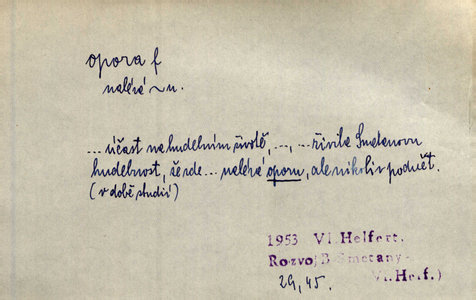 opora f
nalézá ~u.
... účast na hudebním životě, ..., ... živila Smetanovu
hudebnost, že zde ... nalézá oporu, ale nikoliv podnět.
(v době studií)
1953 Vl. Helfert.
Rozvoj B. Smetany -
29, 45. Vl. Helf.)